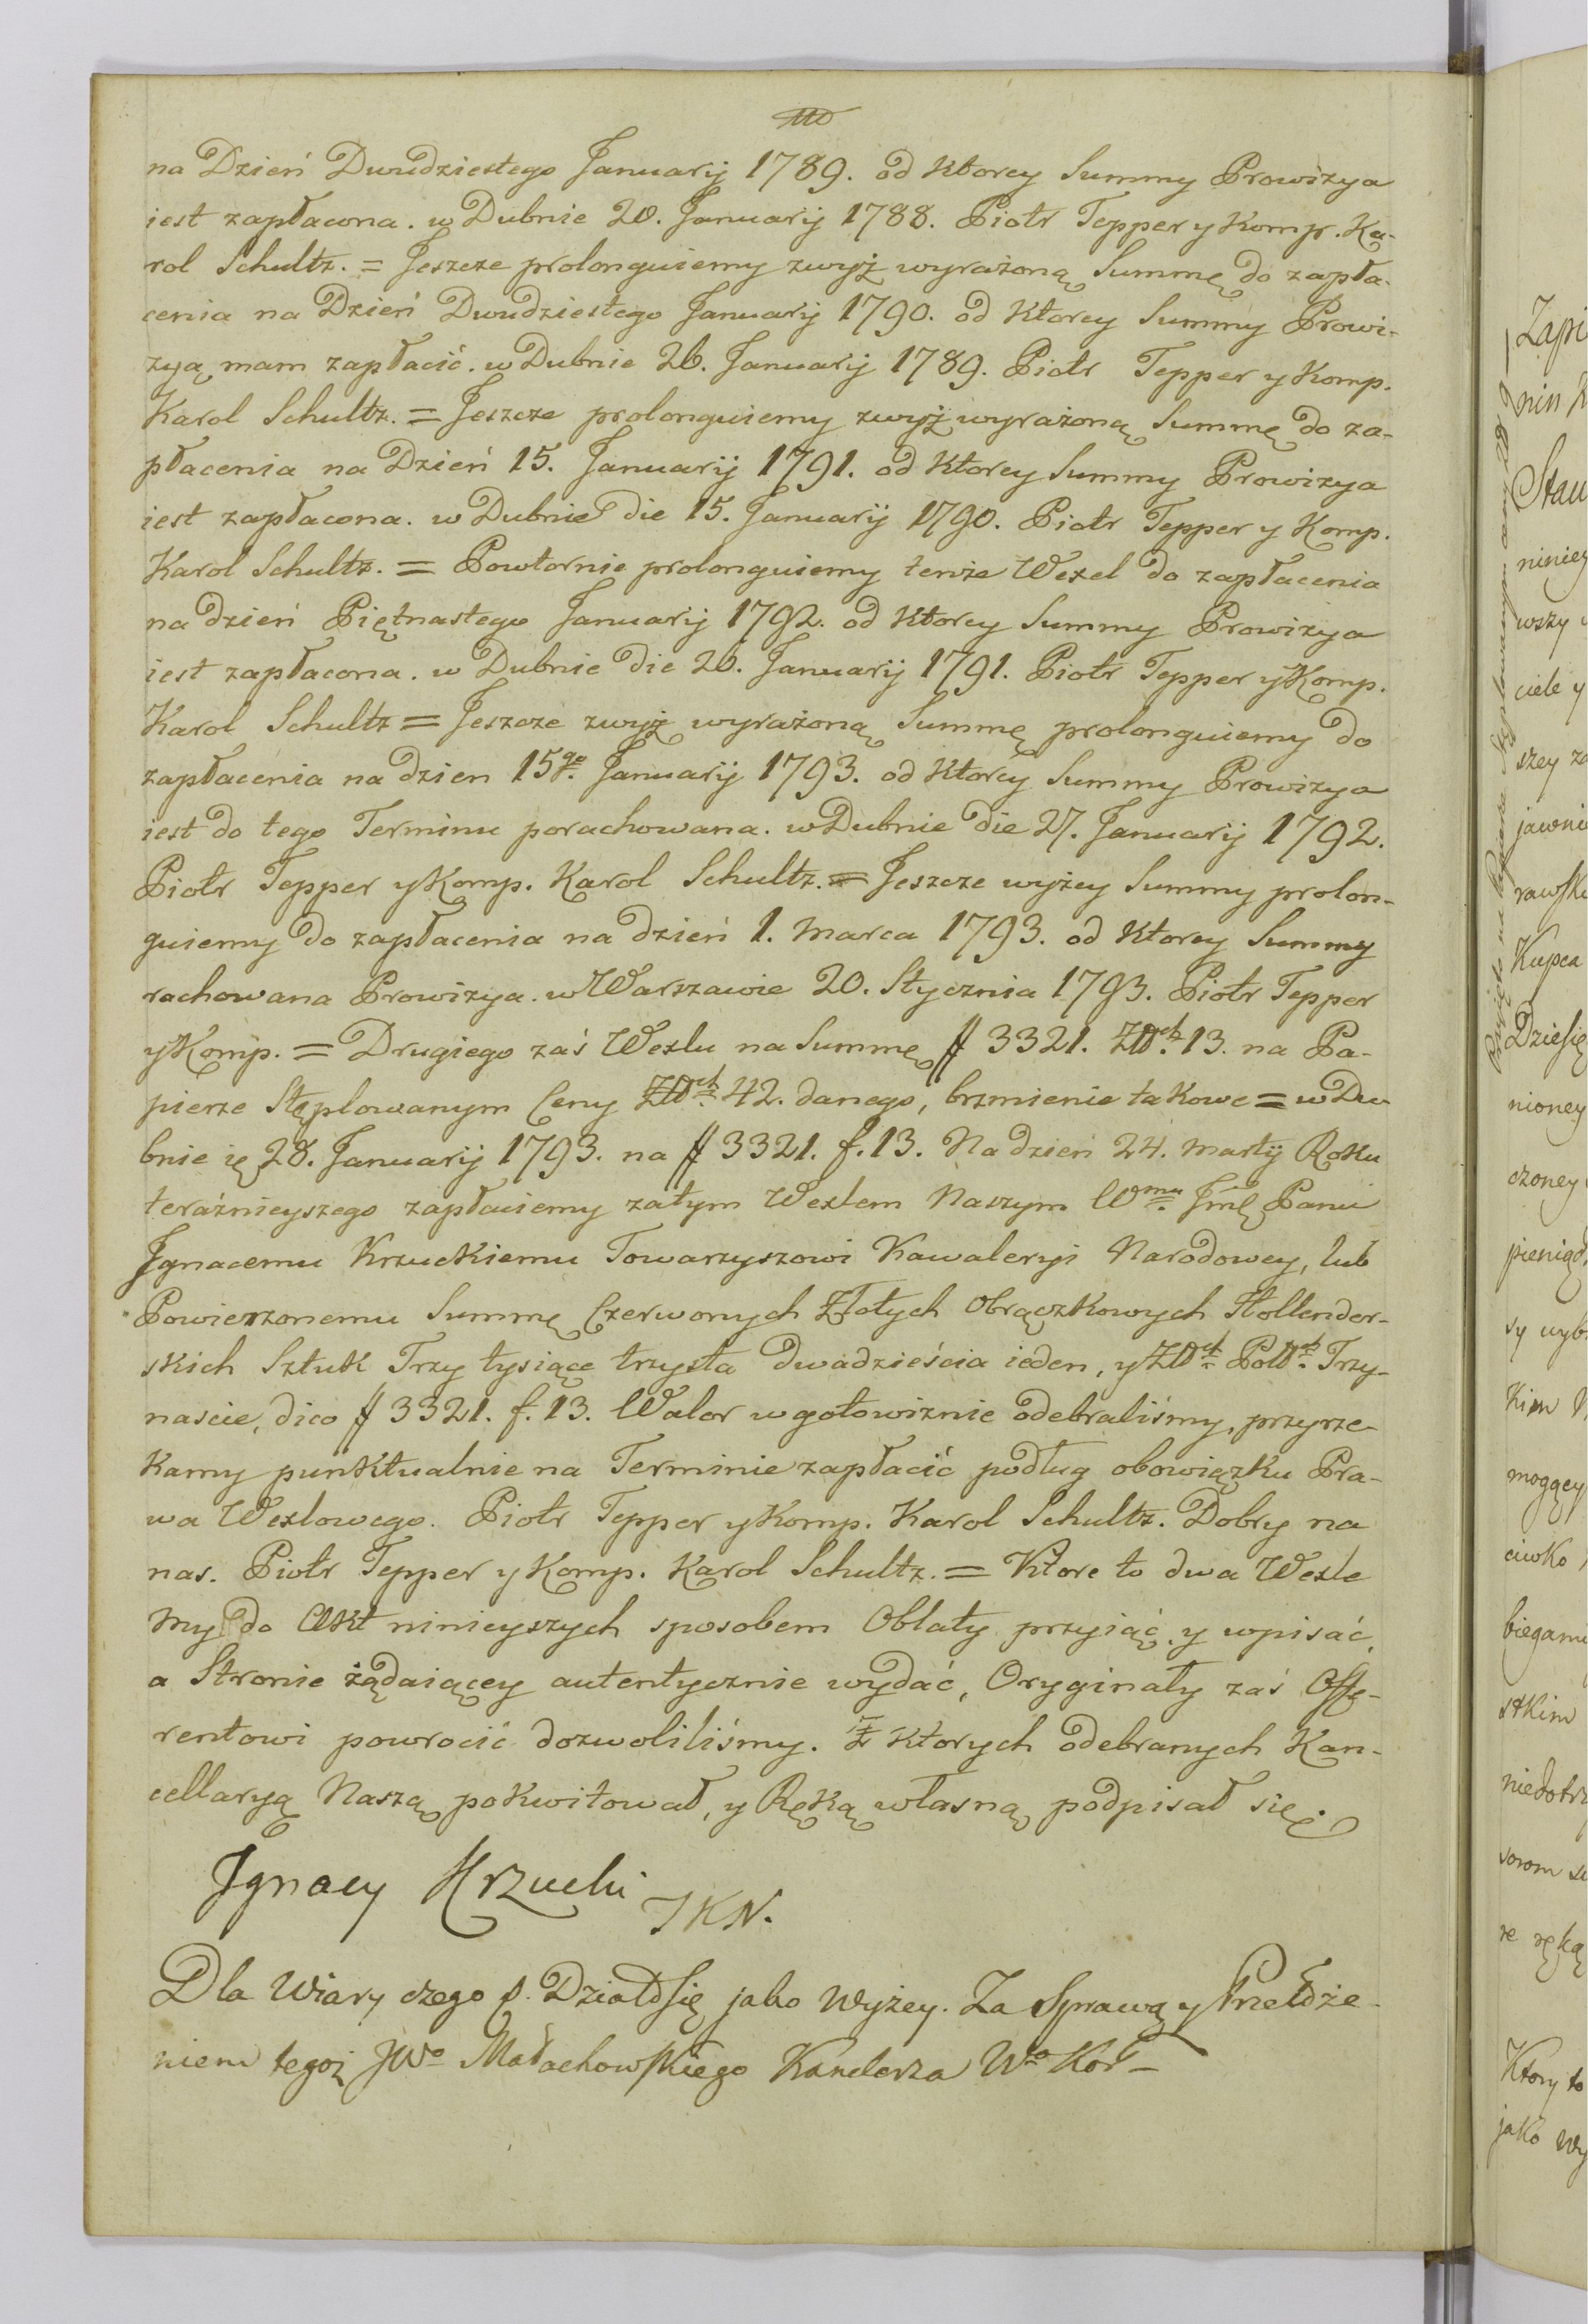 na Dzień Dwudziestego Januarij 1789. od Ktorey Summy Prowizya
iest zapłacona. w Dubnie 20. Januarij 1788. Piotr Tepper y Komp. Ka-
rol Schultz. = Jeszcze prolonguiemy zwyż wyrażoną Summę do zapła-
cenia na Dzień Dwudziestego Januarij 1790. od Ktorey Summy Prowi-
zyą mam zapłacić. w Dubnie 26. Januarij 1789. Piotr Tepper y Komp.
Karol Schultz. = Jeszcze prolonguiemy zwyż wyrażoną Summę do za-
płacenia na Dzień 15. Januarij 1791. od Ktorey Summy Prowizya
iest zapłacona. w Dubnie die 15. Januarij 1790. Piotr Tepper y Komp.
Karol Schultz. = Powtornie prolonguiemy tenże Wexel do zapłacenia
na dzień Piętnastego Januarij 1792. od Ktorey Summy Prowizya
iest zapłacona. w Dubnie die 26. Januarij 1791. Piotr Tepper y Komp.
Karol Schultz = Jeszcze zwyż wyrażoną Summę prolonguiemy do
zapłacenia na dzien 15go Januarij 1793. od Ktorey Summy Prowizya
iest do tego Terminu porachowana. w Dubnie die 27. Januarij 1792.
Piotr Tepper y Komp. Karol Schultz. = Jeszcze wyżey Summy prolon-
guiemy do zapłacenia na dzień 1. Marca 1793. od Ktorey Summy
rachowana Prowizya. w Warszawie 20. Stycznia 1793. Piotr Tepper
y Komp. = Drugiego zaś Wexlu na Summę # 3321. Złłch 13. na Pa-
pierze Stęplowanym Ceny Złłch 42. danego, brzmienie takowe = w Du-
bnie 28. Januarij 1793. na # 3321. f. 13. Na dzień 24. Martij Roku
teraźnieyszego zapłaciemy zatym Wexlem Naszym Wmu Jmć Panu
Ignacemu Krzuckiemu Towarzyszowi Kawaleryi Narodowey, lub
Powierzonemu Summę Czerwonych Złotych Obrączkowych Hollender-
skich Sztuk Trzy tysiące trzysta dwadzieścia ieden, y Złłch Polłch Trzy-
nascie, dico # 3321. f. 13. Walor w gotowiznie odebraliśmy, przyrze-
kamy punktualnie na Terminie zapłacić podług obowiązku Pra-
wa Wexlowego. Piotr Tepper y Komp. Karol Schultz. Dobry na
nas. Piotr Tepper y Komp. Karol Schultz. = Ktore to dwa Wexle
My do Akt ninieyszych sposobem Oblaty przyiąć y wpisać,
a Stronie żądaiącey autentycznie wydać, Oryginały zaś Offe-
rentowi powrocić dozwoliliśmy. Z ktorych odebranych Kan-
cellaryą Naszą pokwitował, y Ręką własną podpisał się.
Ignacy Krzucki TKN.
Dla Wiary czego p. Działo się jako wyżey. Za Sprawą y Przełoże-
niem tegoż JWo Małachowskiego Kanclerza Wo Kor
Zapi
Stau
niniey
wszy
ciele y
szey za
jawnie
rawsk
Kupca
Dziesię
nioney
czoney
pienięd
sy wyb
Kiem
mogącey
ciwko
biegami
stkim
niedotrz
sorom
re ręką
Ktory to
jako wy